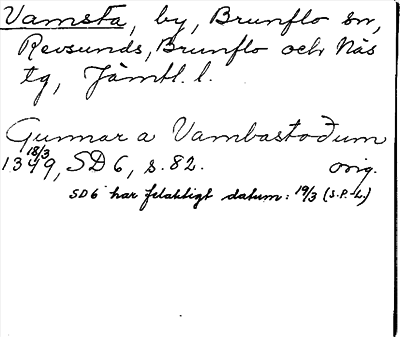 Vamsta, by, Brunflo sn,
Revsunds, Brunflo och Näs
tg, Jämtl. l.
Gunnar a Vambastoðum
18/3
1349, SD 6, s. 82. orig.
SD 6 har felaktigt datum: 19/3 (S.P-L.)